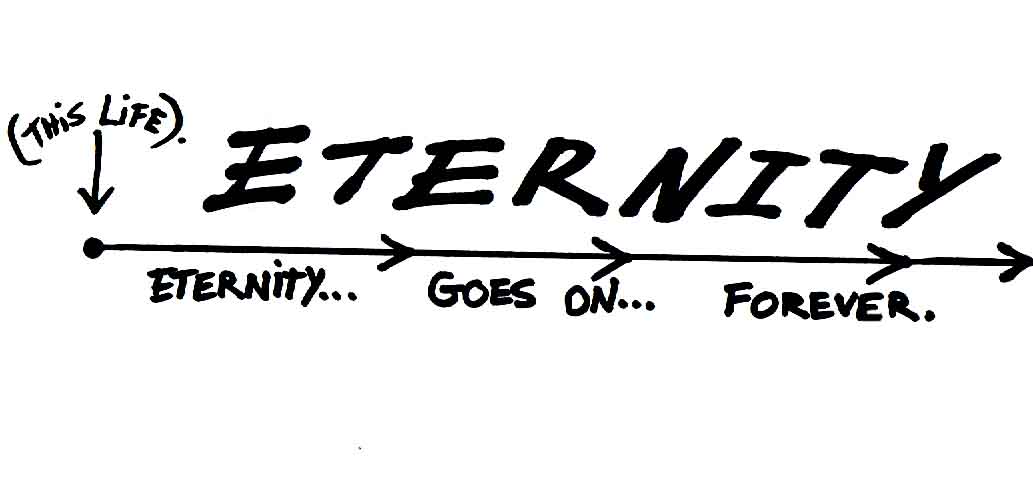 (THiS LiFE).
ETERNITY
ETERNiTY... GOES ON... FOREVER.